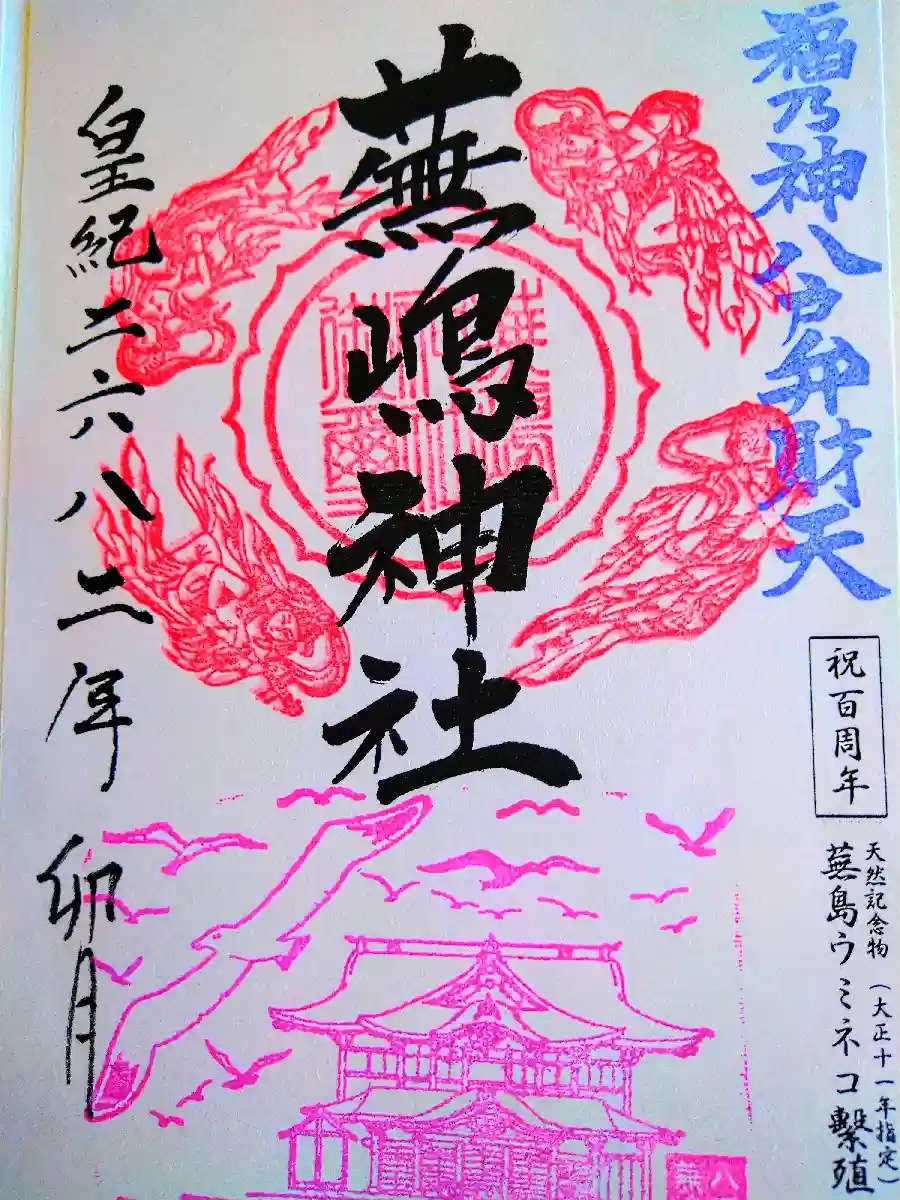 福乃神八戸弁財天
祝百周年
天然記念物 (大正十一年指定)
蕪島ウミネコ繫殖
蕪嶋神社
皇紀二六八二年 卯月
八
蕪